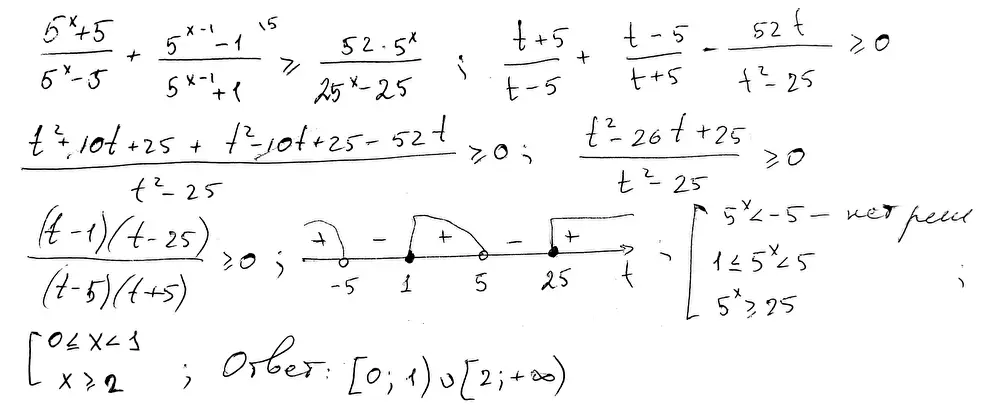 (5^x+5)/(5^x-5) + (5^(x-1)-1)/(5^(x-1)+1) |5 ≥ (52·5^x)/(25^x-25) ; (t+5)/(t-5) + (t-5)/(t+5) - 52t/(t²-25) ≥ 0
(t²+10t+25 + t²-10t+25-52t)/(t²-25) ≥ 0 ; (t²-26t+25)/(t²-25) ≥ 0
((t-1)(t-25))/((t-5)(t+5)) ≥ 0 ; + -5 - 1 + 5 - 25 + t ; [ 5^x < -5 - нет реш
1 ≤ 5^x < 5
5^x ≥ 25 ;
[ 0 ≤ x < 1
x ≥ 2 ; Ответ: [0; 1) ∪ [2; +∞)